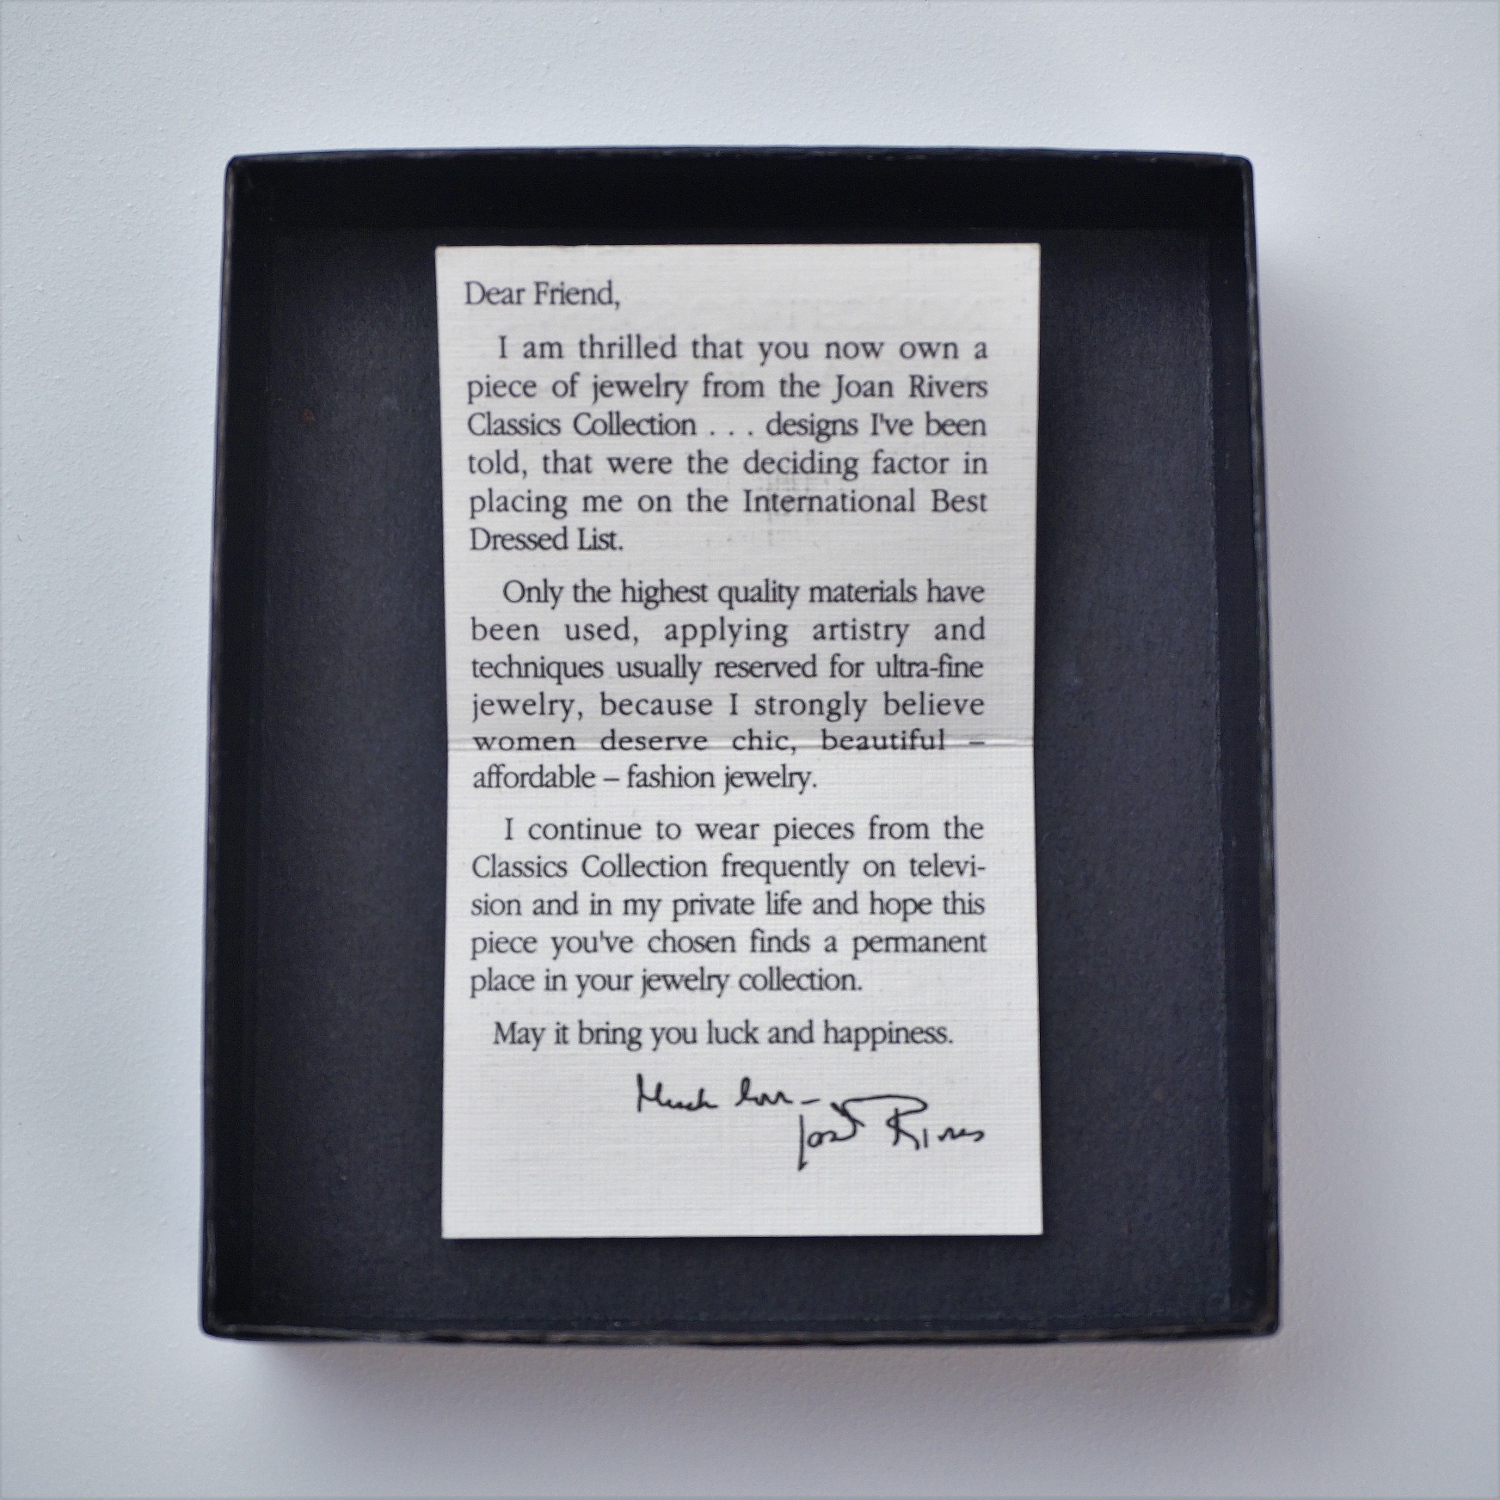 Dear Friend,
I am thrilled that you now own a
piece of jewelry from the Joan Rivers
Classics Collection . . . designs I've been
told, that were the deciding factor in
placing me on the International Best
Dressed List.
Only the highest quality materials have
been used, applying artistry and
techniques usually reserved for ultra-fine
jewelry, because I strongly believe
women deserve chic, beautiful –
affordable – fashion jewelry.
I continue to wear pieces from the
Classics Collection frequently on televi-
sion and in my private life and hope this
piece you've chosen finds a permanent
place in your jewelry collection.
May it bring you luck and happiness.
Much love –
Joan Rivers